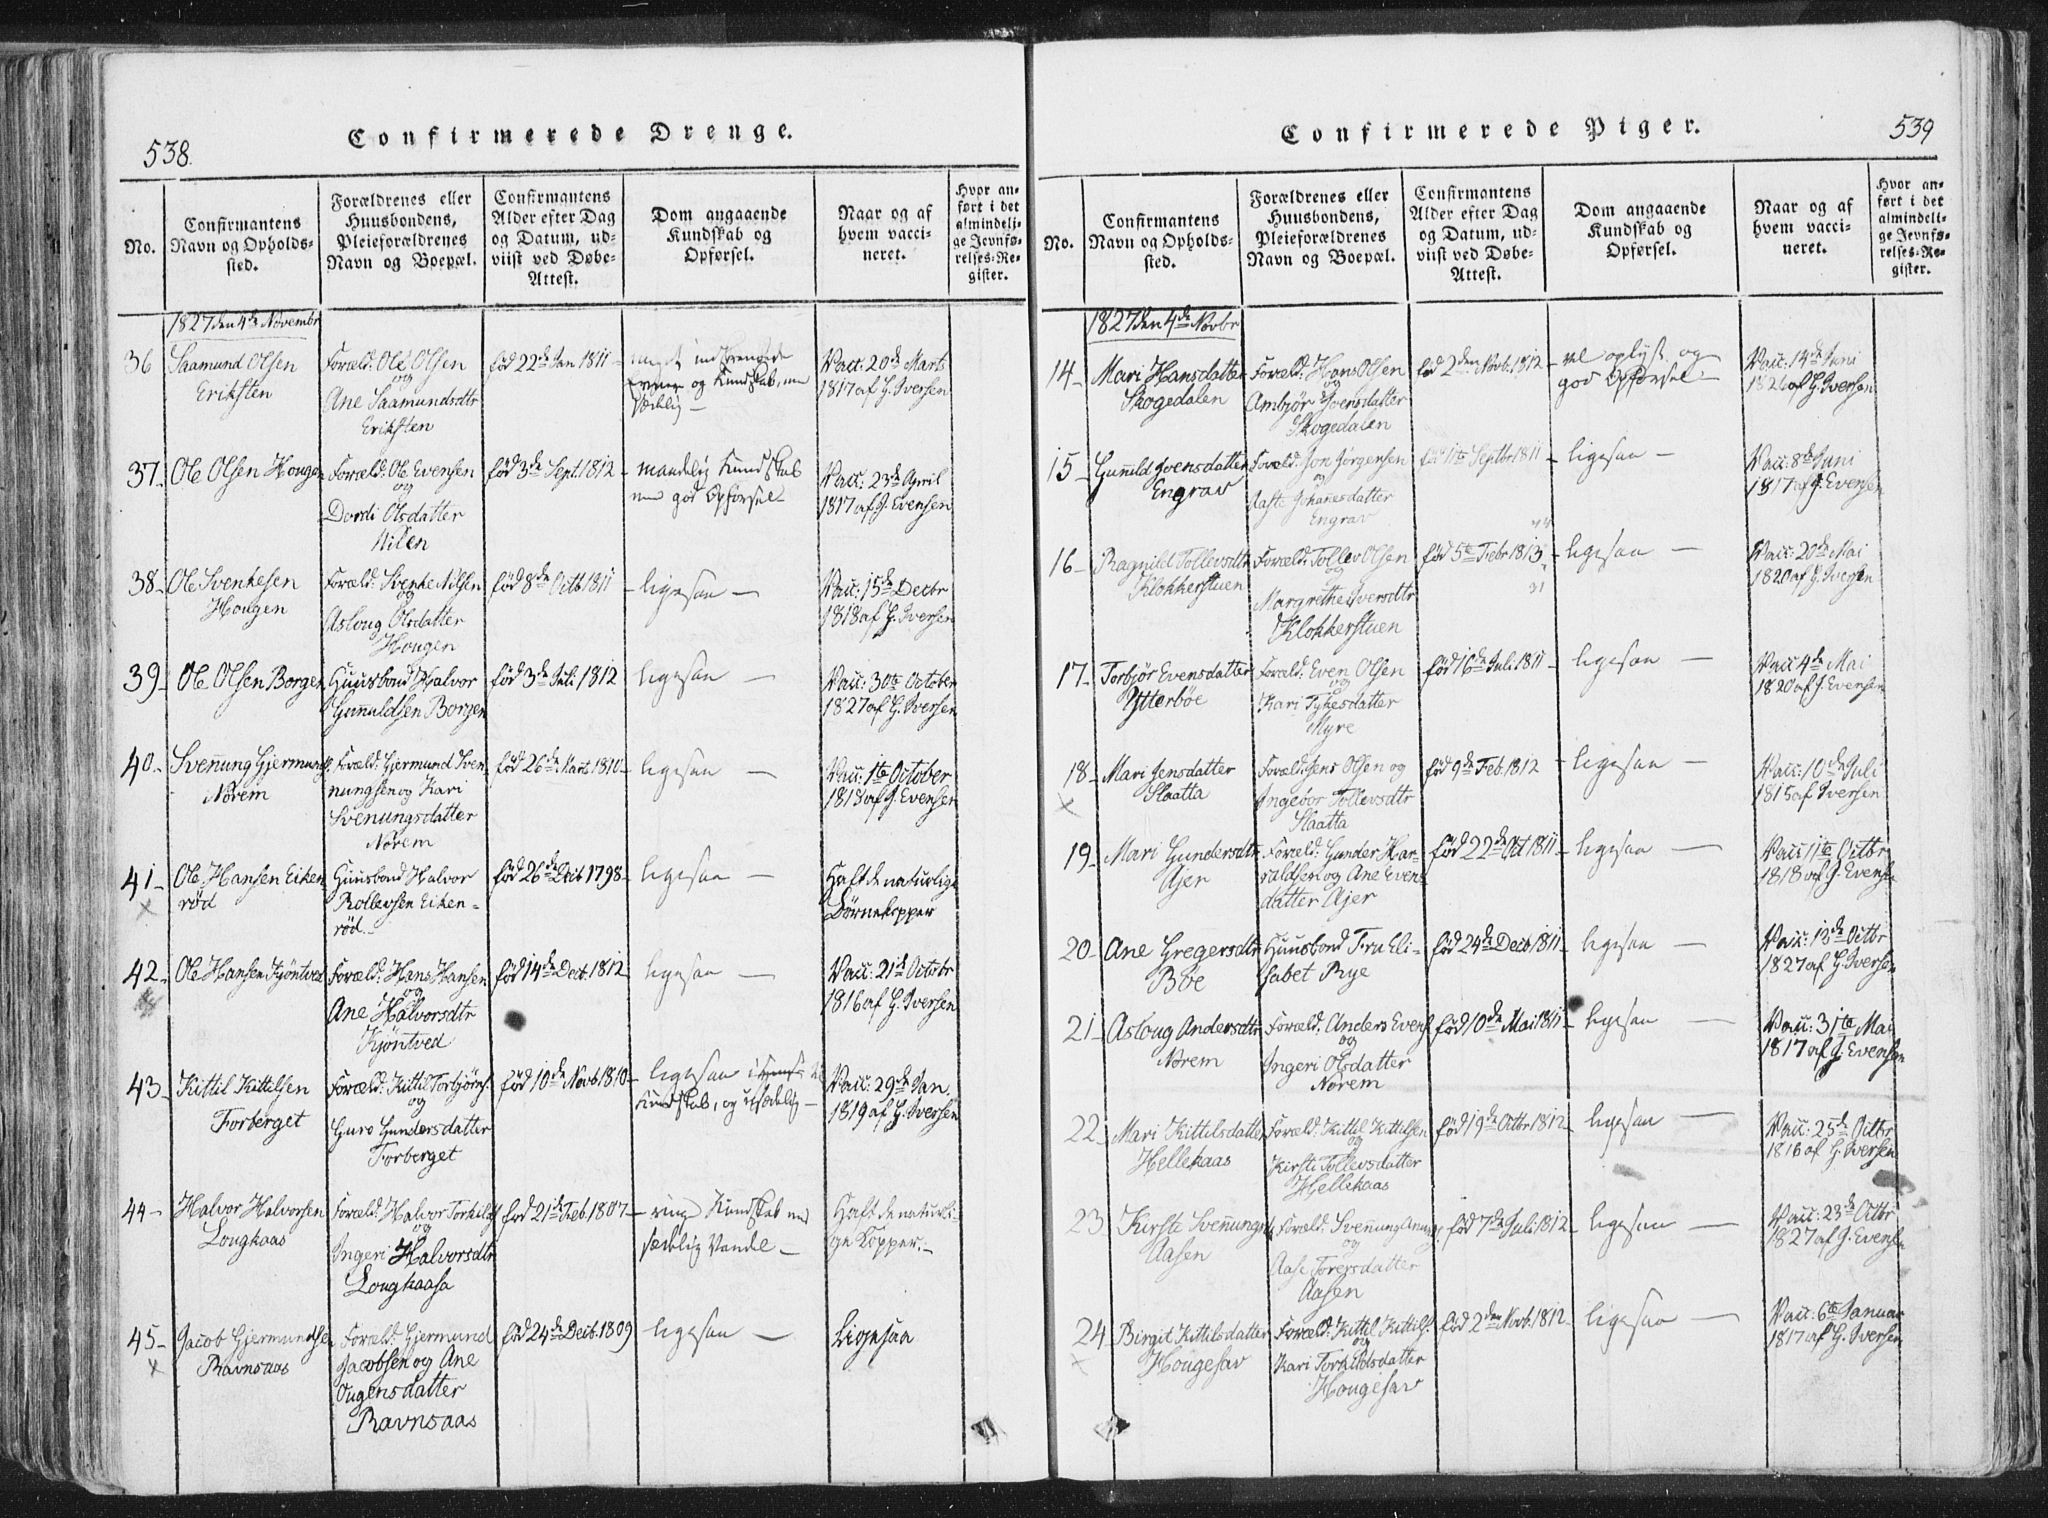 538.
Confirmerede Drenge.
No.
Confirmantens
Navn og Opholds-
sted.
Forældrenes eller
Huusbondens,
Pleieforældrenes
Navn og Boepæl.
Confirmantens
Alder efter Dag
og Datum, ud-
viist ved Døbe-
Attest.
Dom angaaende
Kundskab og
Opførsel.
Naar og af
hvem vacci-
neret.
Hvor an-
ført i det
almindeli-
ge Jevnfø-
relses-Re-
gister.
1827 den 4de Novembr
36
Saamund Olsen
Eriksten
Foræld: Ole Olsen
og
Ane Saamundsdtr
Eriksten
född 22de Jan 1811
og Kundskab, men
Sædelig
Vacc: 20de Marts
1817 af G. Iversen
37
Ole Olsen Hougen
Foræld: Ole Evensen
og
Dordi Olsdatter
Nilen
född 3de Sept. 1812
maadelig Kundskab
med god Opførsel
Vacc: 23de April
1817 af G. Evensen
38
Ole Svenkesen
Hougen
Foræld: Svenke Nilsen
og
Asloug Olsdatter
Hougen
född 8de Octb 1811
ligesaa
Vacc: 15de Decbr
1818 af G. Iversen
39
Ole Olsen Borgen
Huusbond Halvor
Gunnuldsen Borgen
född 3de Juli 1812
ligesaa
Vacc: 30te October
1827 af G. Iversen
40
Svenung Gjermunds.
Norem
Foræld: Gjermund Sven
nungsen og Kari
Svenungsdatter
Norem
född 26de Marts 1810
ligesaa
Vacc: 1te October
1813 af G. Evensen
41
Ole Hansen Eiken
rød
Huusbond Halvor
Rollevsen Eiken-
rød
född 26de Decb 1798
ligesaa
Haft de naturlige
Børnekopper
42
Ole Hansen Kjöntved
Foræld: Hans Hansen
og
Ane Halvorsdtr
Kjöntved
född 14de Decb. 1812
ligesaa
Vacc: 21de Octobr
1816 af G. Iversen
43
Kittil Kittilsen
Forberget
Foræld: Kittil Torbjörns.
og
Guro Gundersdatter
Forberget
född 10de Novb 1810
ligesaa i
Kundskab, og usædelig
Vacc: 29de Jan.
1819 af G. Iversen
44
Halvor Halvorsen
Lougkaas
Foræld: Halvor Torkilds
og
Ingeri Halvorsdtr
Lougkaasa
född 21de Feb. 1807
ringe Kundskab med
sædelig Vandel
Haft de naturli-
ge Kopper.
45
Jacob Gjermundsen
Ravnsaas
Foræld: Gjermund
Jacobsen og Ane
Ougensdatter
Ravnsaas
född 24de Decb. 1809
ligesaa
Ligesaa
Confirmerede Piger.
539
No.
Confirmantens
Navn og Opholds-
sted.
Forældrenes eller
Huusbondens,
Pleieforældrenes
Navn og Boepæl.
Confirmantens
Alder efter Dag
og Datum, ud-
viist ved Døbe-
Attest.
Dom angaaende
Kundskab og
Opførsel.
Naar og af
hvem vacci-
neret.
Hvor an-
ført i det
almindeli-
ge Jevnfø-
relses-Re-
gister.
1827 den 4de Novbr
14
Mari Hansdatter
Skogedalen
Foræld: Hans Olsen
og
Ambjör Svensdatter
Skogedalen
född 2den Novb. 1812
vel oplyst og
god Opførsel
Vacc: 14de Juni
1820 af G. Iversen
15
Gunnild Jvensdatter
Engrav
Foræld: Jon Jörgensen
og
Aaste Johanesdatter
Engrav
född 11te Septbr 1811
ligesaa
Vacc: 8de Juni
1817 af G. Evensen
16
Ragnild Tollevsdtr
Klokkerstuen
Foræld: Tollev Olsen
og
Margrethe Iversdtr
Klokkerstuen
född 5te Febr 1813
ligesaa
Vacc: 20de Mai
1820 af G. Iversen
17
Torbjör Evensdatter
Ytterböe
Foræld: Even Olsen
og
Kari Tykesdatter
Myre
född 16de Juli 1811
ligesaa
Vacc 4de Mai
1820 af G. Evensen
18
Mari Jensdatter
Slaatta
Foræld: Jens Olsen og
Ingeoor Tollevsdtr
Slaatta
född 9de Feb. 1812
ligesaa
Vacc: 10de Juli
1815 af Iversen
19
Mari Gundersdtr
Ajer
Foræld: Gunder Har-
raldsen og Ane Evens
datter Ajer
född 22de Oct 1811
ligesaa
Vacc 11te Octbr
1818 af G. Evensen
20
Ane Gregersdtr
Böe
Huusbond Fru Eli-
sabet Rye
född 24de Decb 1811
ligesaa
Vacc: 13de Octbr
1827 af G. Iversen
21
Asloug Andersdtr
Norem
Foræld: Anders Evens
og
Ingeri Olsdatter
Norem
född 10de Mai 1811
ligesaa
Vacc: 31te Mai
1817 af G. Evensen
22
Mari Kittilsdatter
Hellekaas
Foræld: Kittil Kittilsen
og
Kirsti Tollevsdatter
Hellekaas
född 19de Octbr 1812
ligesaa
Vacc: 25de Octbr
1816 af G. Iversen
23
Kirste Svennungsd.
Aasen
Foræld: Svennung Anung
og
Aase Torersdatter
Aasen
född 7de Juli 1812
ligesaa
Vacc: 23de Octbr
1827 af G. Evensen
24
Birgit Kittilsdatter
Hougesav
Foræld: Kittil Kittils.
og
Kari Torkildsdatter
Hougesav
född 2den Novb. 1812
ligesaa
Vacc: 6te Januar
1817 af G. Iversen